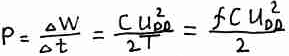 P = ΔW/Δt = C U_DD²/2T = fC U_DD²/2